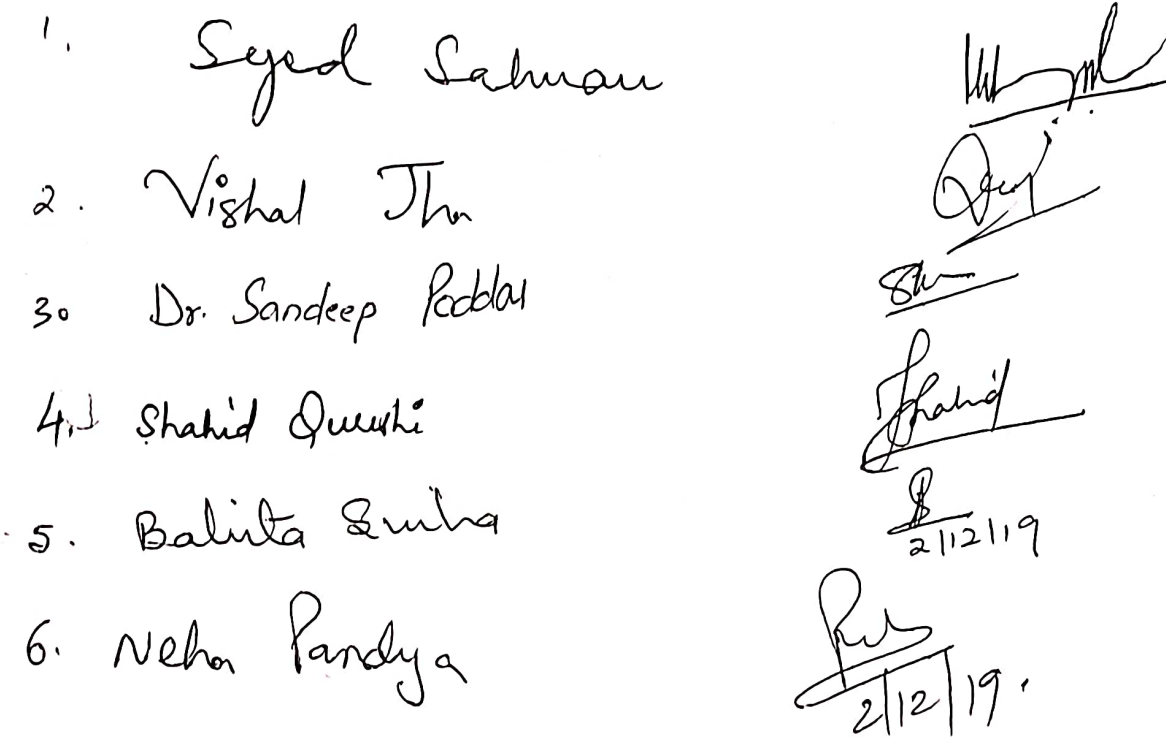 1. Syed Salman
2. Vishal Jha
3. Dr. Sandeep Poddar
4. Shahid Qureshi Shahid
5. Sinha
2/12/19
6. Neha Pandya
2/12/19.